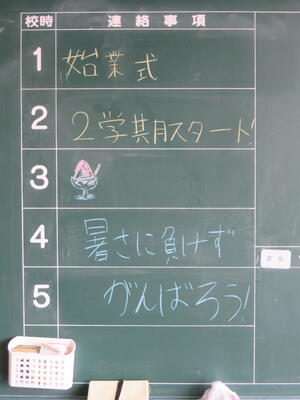 校時 連絡事項
1 始業式
2 2学期スタート!
3
4 暑さに負けず
5 がんばろう!